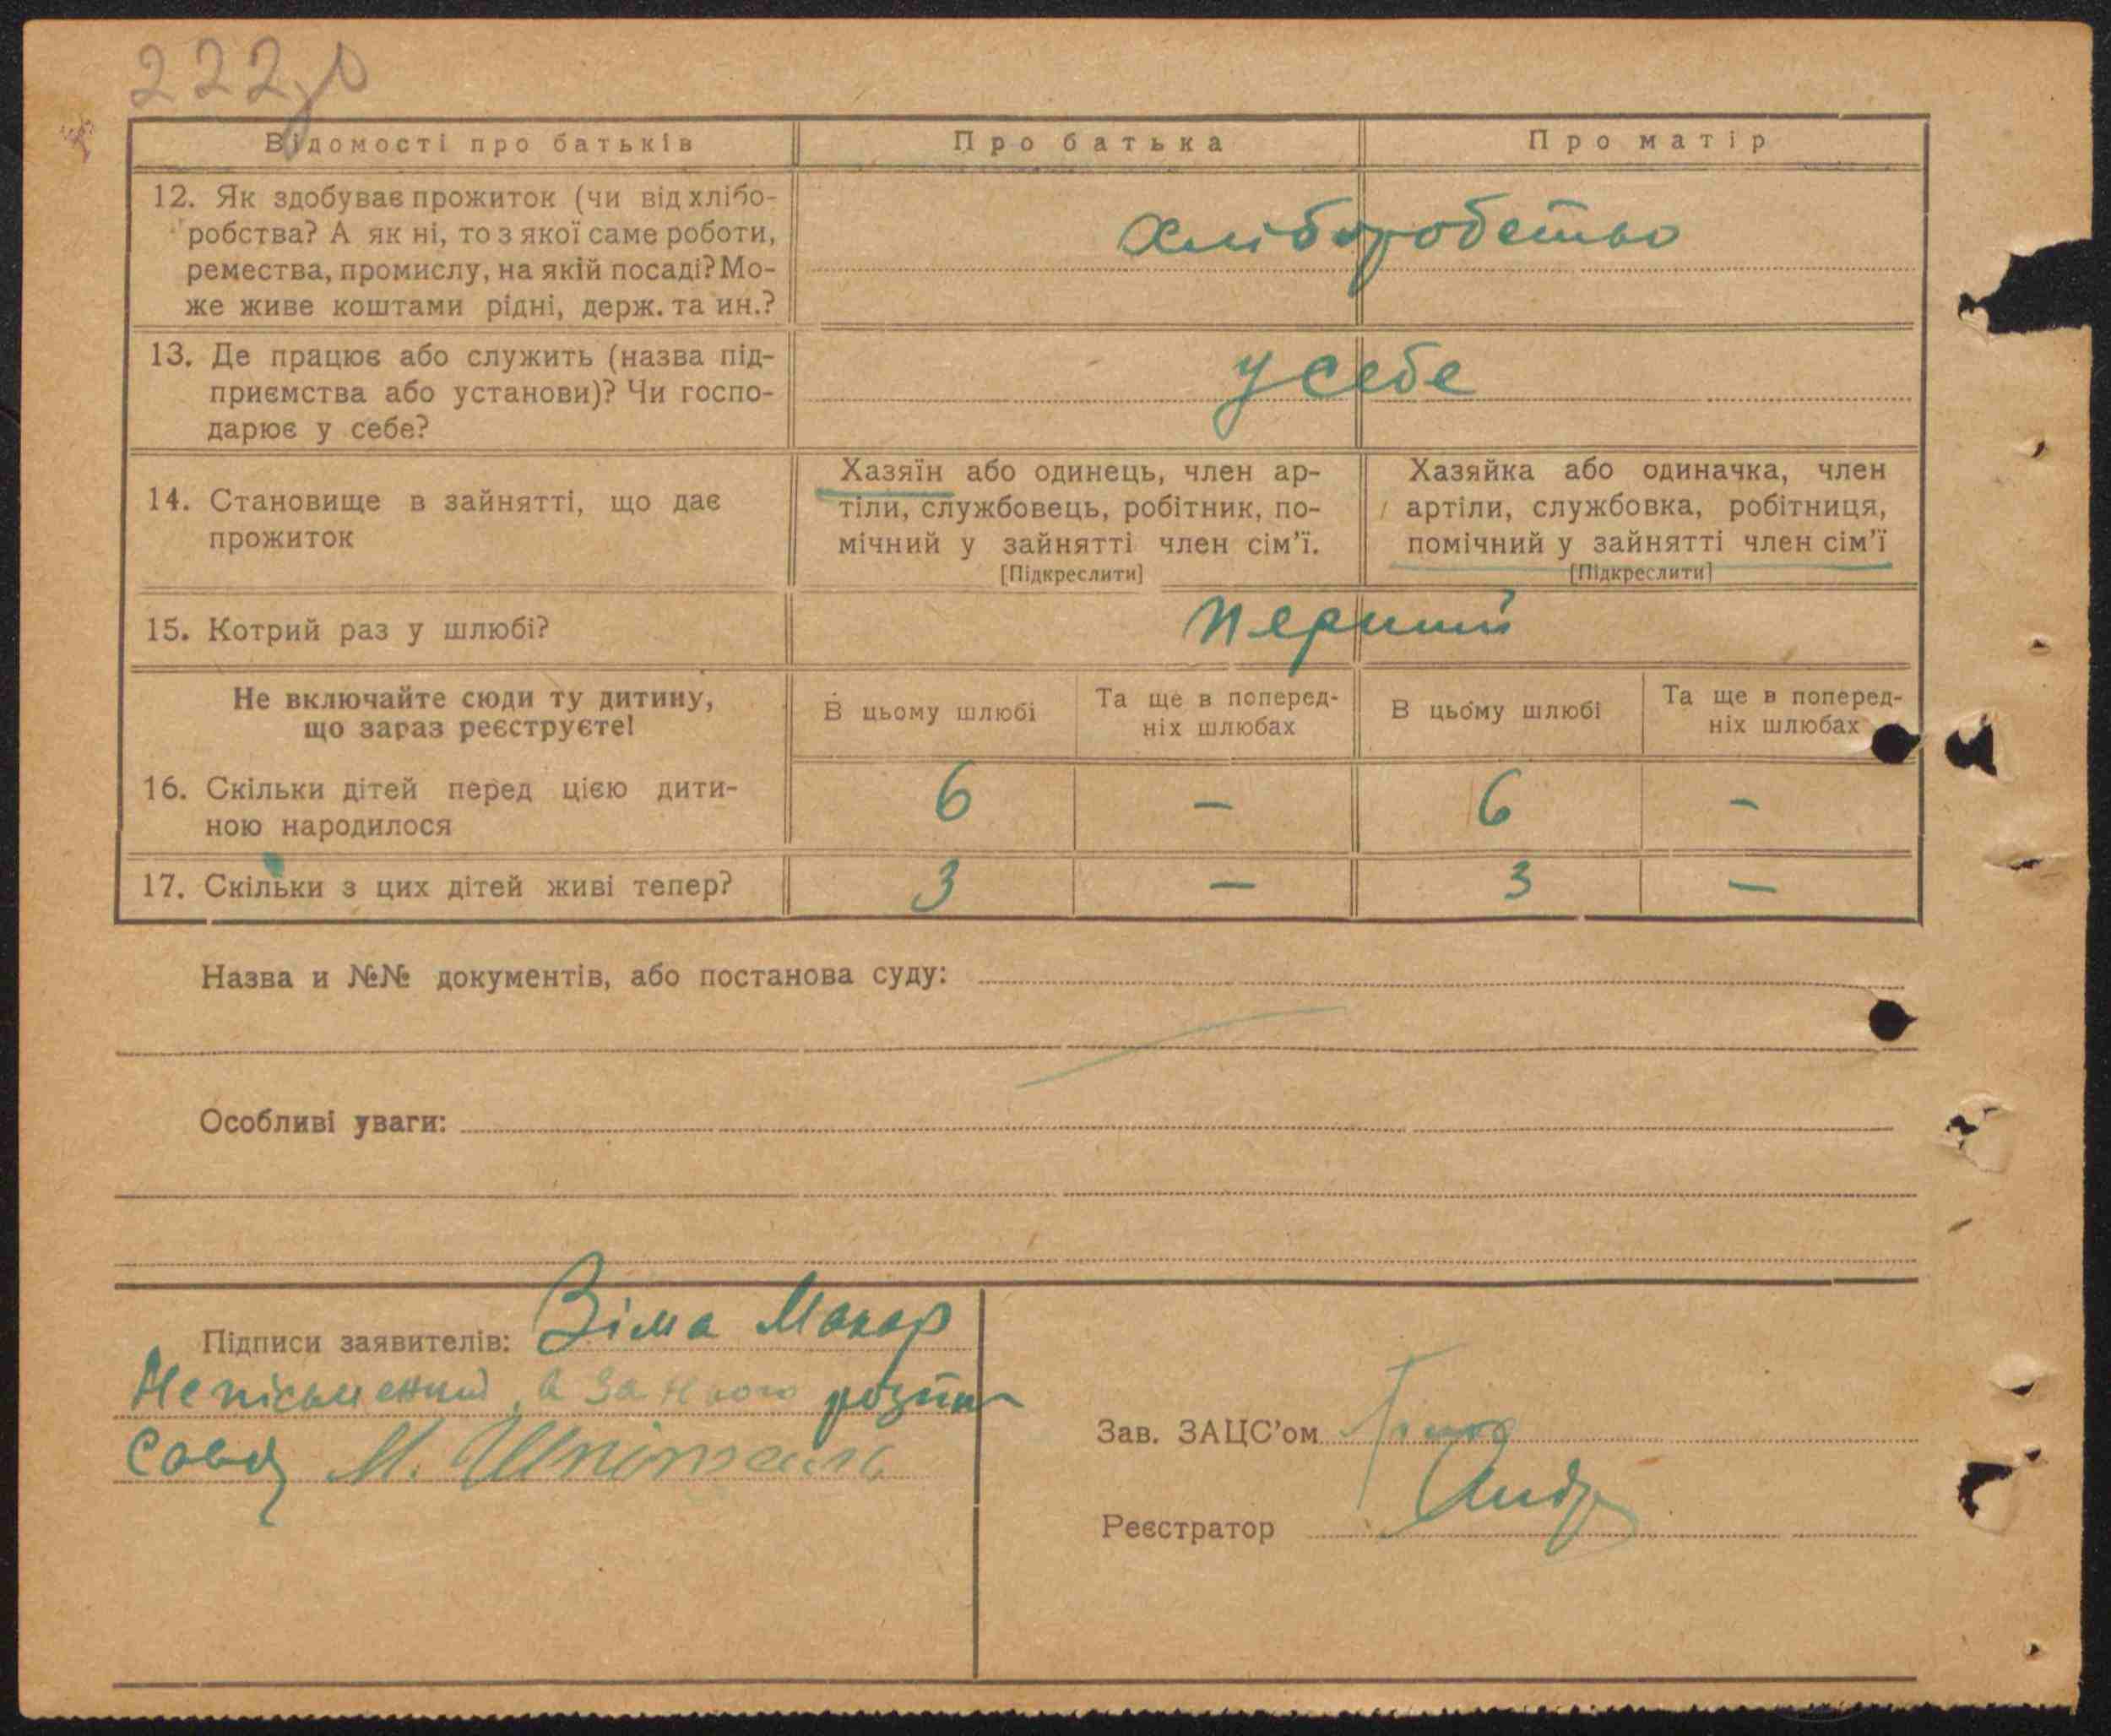 222
Відомості про батьків Про батька Про матір
12. Як здобуває прожиток (чи від хлібо-
робства? А як ні, то з якої саме роботи,
ремества, промислу, на якій посаді? Мо-
же живе коштами рідні, держ. та ин.?
хліборобство
13. Де працює або служить (назва під-
приємства або установи)? Чи госпо-
дарює у себе?
у себе
14. Становище в зайнятті, що дає
прожиток
Хазяїн або одинець, член ар-
тіли, службовець, робітник, по-
мічний у зайнятті член сім'ї.
[Підкреслити]
Хазяйка або одиначка, член
артіли, службовка, робітниця,
помічний у зайнятті член сім'ї
[Підкреслити]
15. Котрий раз у шлюбі? перший
Не включайте сюди ту дитину,
що зараз реєструєте!
В цьому шлюбі
Та ще в поперед-
ніх шлюбах
В цьому шлюбі
Та ще в поперед-
ніх шлюбах
16. Скільки дітей перед цією дити-
ною народилося
6 — 6 —
17. Скільки з цих дітей живі тепер? 3 — 3 —
Назва и №№ документів, або постанова суду:
Особливі уваги:
Підписи заявителів: Зіма Макар
Неписьменний, а за нього розпи
сався М.
Зав. ЗАЦС'ом
Реєстратор